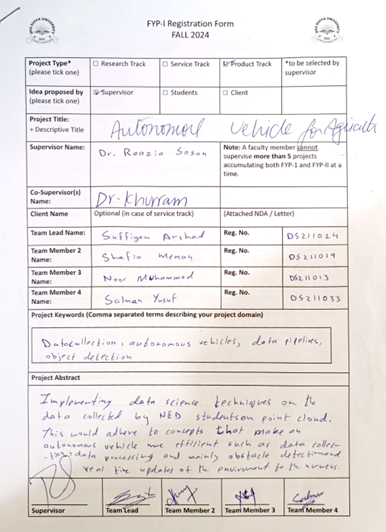 FYP-I Registration Form
FALL 2024
Project Type* (please tick one) ☐ Research Track ☐ Service Track ☑ Product Track *to be selected by supervisor
Idea proposed by (please tick one) ☑ Supervisor ☐ Students ☐ Client
Project Title: + Descriptive Title Autonomous Vehicle for Agricultu
Supervisor Name: Dr. Raazia Sosan Note: A faculty member cannot supervise more than 5 projects accumulating both FYP-1 and FYP-II at a time.
Co-Supervisor(s) Name: Dr. Khurram
Client Name Optional (in case of service track) (Attached NDA / Letter)
Team Lead Name: Suffiyan Arshad Reg. No. DS211024
Team Member 2 Name: Shafin Memon Reg. No. DS211019
Team Member 3 Name: Noor Muhammed Reg. No. DS211013
Team Member 4 Name: Salman Yusuf Reg. No. DS211033
Project Keywords (Comma separated terms describing your project domain)
Datacollection, autonomous vehicles, data pipelines,
object detection
Project Abstract
Implementing data science techniques on the
data collected by NED students on point cloud.
This would adhere to concepts that make an
autonomous vehicle more efficient such as data collec-
-tion, data processing and mainly obstacle detection and
real time updates of the environment to the owners.
Supervisor Team Lead Team Member 2 Team Member 3 Team Member 4